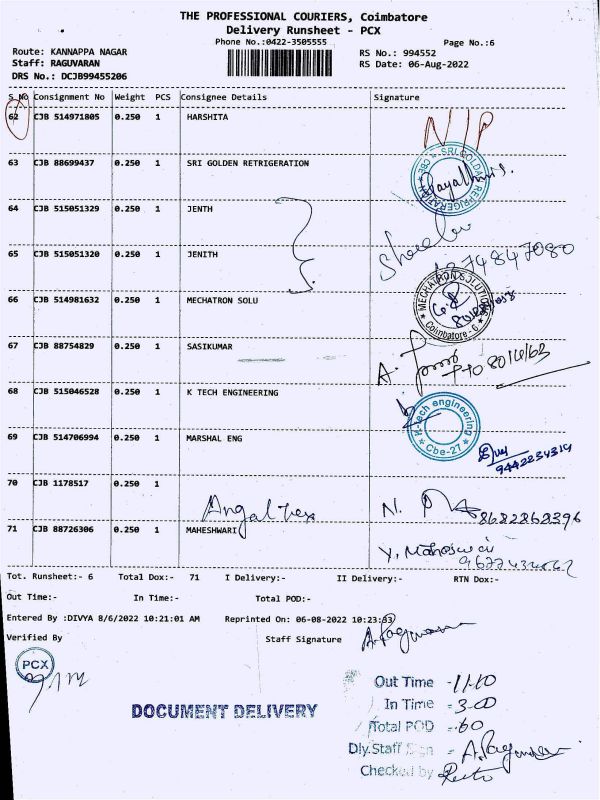 THE PROFESSIONAL COURIERS, Coimbatore
Delivery Runsheet - PCX
Phone No.:0422-3505555
Page No.:6
Route: KANNAPPA NAGAR
RS No.: 994552
Staff: RAGUVARAN
RS Date: 06-Aug-2022
DRS No.: DCJB99455206
S No Consignment No Weight PCS Consignee Details Signature
62 CJB 514971805 0.250 1 HARSHITA
N/P
63 CJB 88699437 0.250 1 SRI GOLDEN RETRIGERATION
64 CJB 515051329 0.250 1 JENTH
65 CJB 515051320 0.250 1 JENITH
66 CJB 514981632 0.250 1 MECHATRON SOLU
MECHATRON SOLUTIONS
Coimbatore - 6
67 CJB 88754829 0.250 1 SASIKUMAR
68 CJB 515046528 0.250 1 K TECH ENGINEERING
K-tech engineering
Cbe-27
69 CJB 514706994 0.250 1 MARSHAL ENG
9442234314
70 CJB 1178517 0.250 1
8682868396
71 CJB 88726306 0.250 1 MAHESHWARI
Tot. Runsheet:- 6 Total Dox:- 71 I Delivery:- II Delivery:- RTN Dox:-
Out Time:- In Time:- Total POD:-
Entered By :DIVYA 8/6/2022 10:21:01 AM Reprinted On: 06-08-2022 10:23:53
Verified By Staff Signature
PCX
DOCUMENT DELIVERY
Out Time - 11.10
In Time = 3.00
Total POD = 60
Dly.Staff Sign =
Checked by